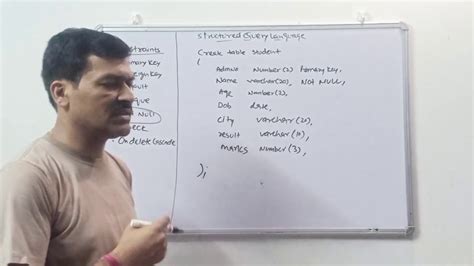 Structured Query Language
straints
imary Key
eign Key
ault
que
Null
eck
On delete Cascade
Create table student
(
Admno Number(2) Primary Key,
Name varchar(20), NOT NULL,
Age Number(2),
Dob date,
City varchar(20),
result varchar(10),
marks Number(3),
);